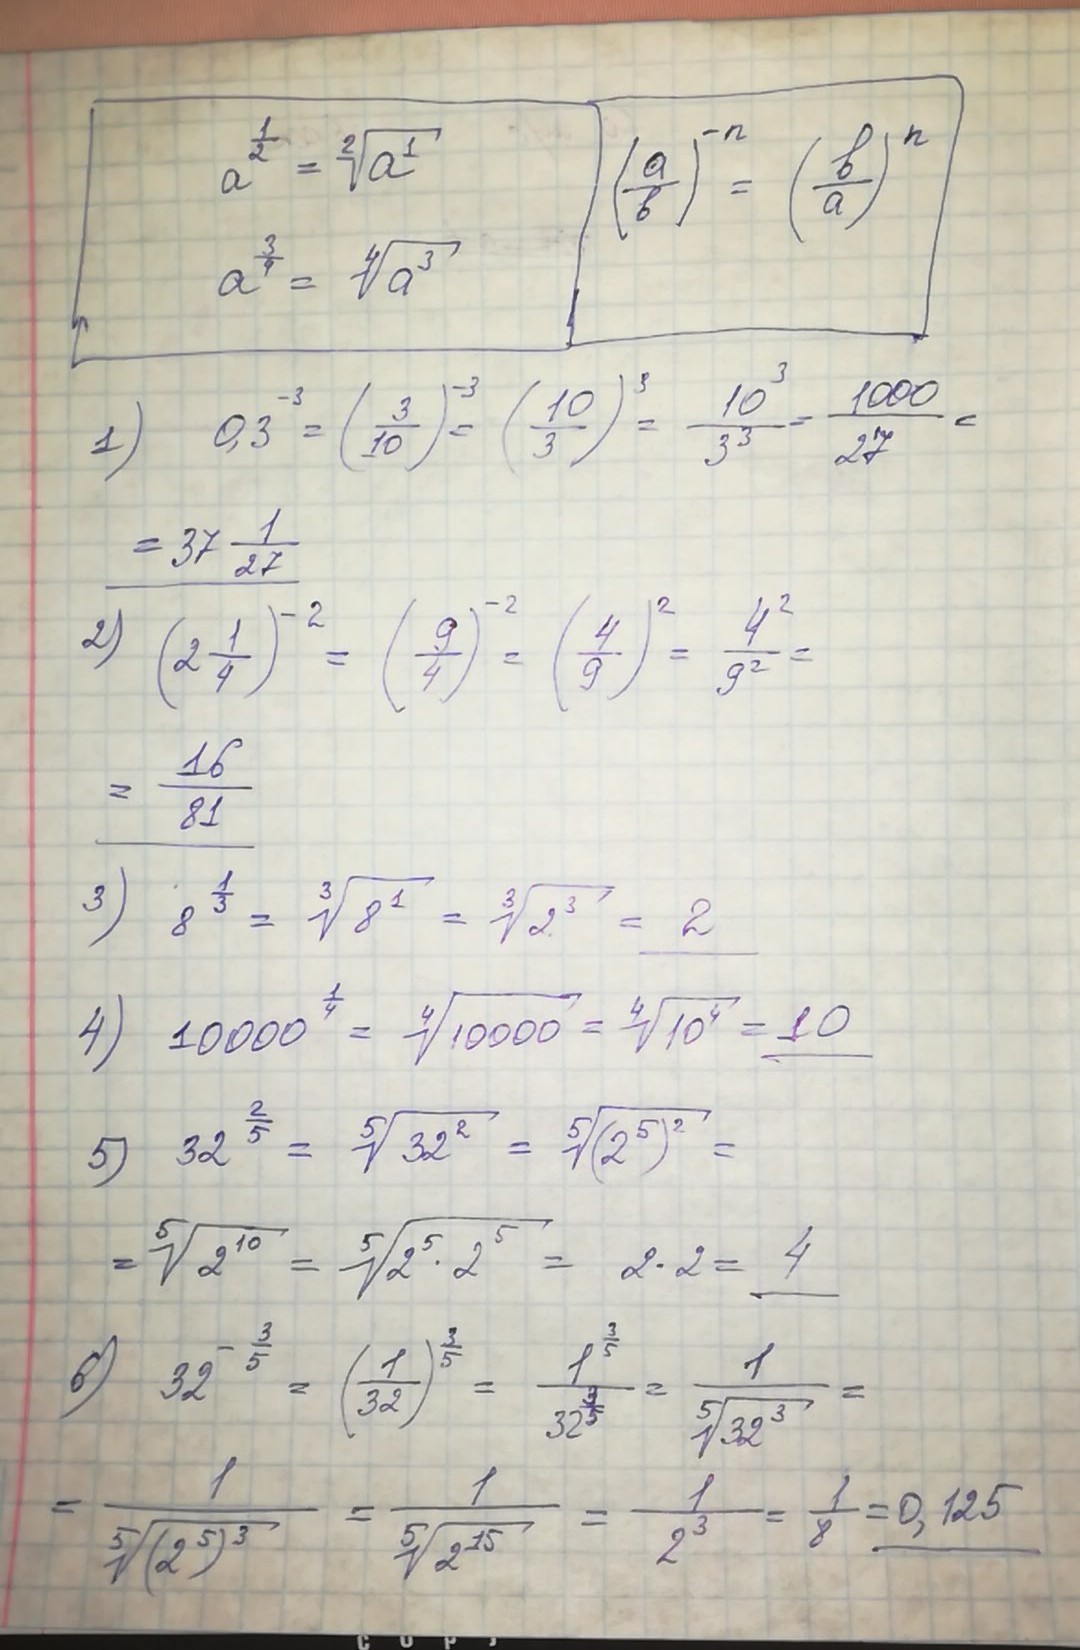 a^{\frac{1}{2}} = \sqrt[2]{a^1}
a^{\frac{3}{4}} = \sqrt[4]{a^3}
\left(\frac{a}{b}\right)^{-n} = \left(\frac{b}{a}\right)^n
1) 0,3^{-3} = \left(\frac{3}{10}\right)^{-3} = \left(\frac{10}{3}\right)^3 = \frac{10^3}{3^3} = \frac{1000}{27} =
= 37\frac{1}{27}
2) \left(2\frac{1}{4}\right)^{-2} = \left(\frac{9}{4}\right)^{-2} = \left(\frac{4}{9}\right)^2 = \frac{4^2}{9^2} =
= \frac{16}{81}
3) 8^{\frac{1}{3}} = \sqrt[3]{8^1} = \sqrt[3]{2^3} = 2
4) 10000^{\frac{1}{4}} = \sqrt[4]{10000} = \sqrt[4]{10^4} = 10
5) 32^{\frac{2}{5}} = \sqrt[5]{32^2} = \sqrt[5]{(2^5)^2} =
= \sqrt[5]{2^{10}} = \sqrt[5]{2^5 \cdot 2^5} = 2 \cdot 2 = 4
6) 32^{-\frac{3}{5}} = \left(\frac{1}{32}\right)^{\frac{3}{5}} = \frac{1^{\frac{3}{5}}}{32^{\frac{3}{5}}} = \frac{1}{\sqrt[5]{32^3}} =
= \frac{1}{\sqrt[5]{(2^5)^3}} = \frac{1}{\sqrt[5]{2^{15}}} = \frac{1}{2^3} = \frac{1}{8} = 0,125